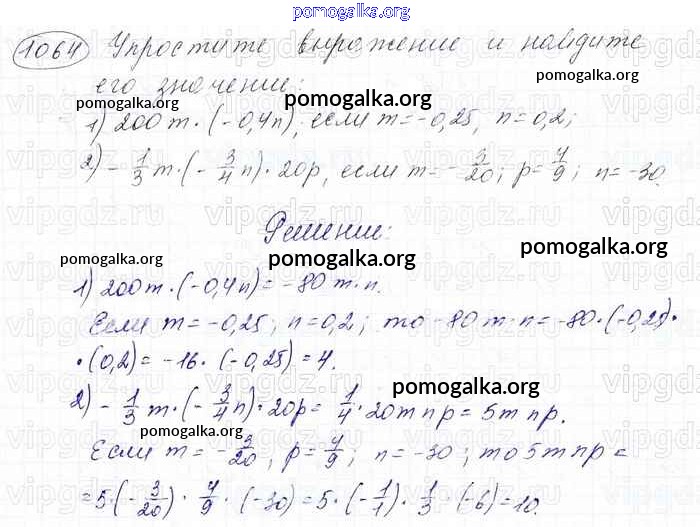 pomogalka.org
1064 Упростите выражение и найдите
его значение:
pomogalka.org
pomogalka.org
pomogalka.org
1) 200m·(-0,4n), если m=-0,25, n=0,2;
pomogalka.org
pomogalka.org
2) -1/3 m·(-3/4 n)·20p, если m=-3/20; p=4/9; n=-30.
Решение:
pomogalka.org
pomogalka.org
pomogalka.org
1) 200m·(-0,4n)=-80m·n.
Если m=-0,25; n=0,2; то -80m·n=-80·(-0,25)·
·(0,2)=-16·(-0,25)=4.
pomogalka.org
2) -1/3 m·(-3/4 n)·20p=1/4·20mnp=5mnp.
pomogalka.org
Если m=-3/20; p=4/9; n=-30; то 5mnp=
=5·(-3/20)·4/9·(-30)=5·(-1/1)·1/3·(-6)=10.
vipgdz.ru